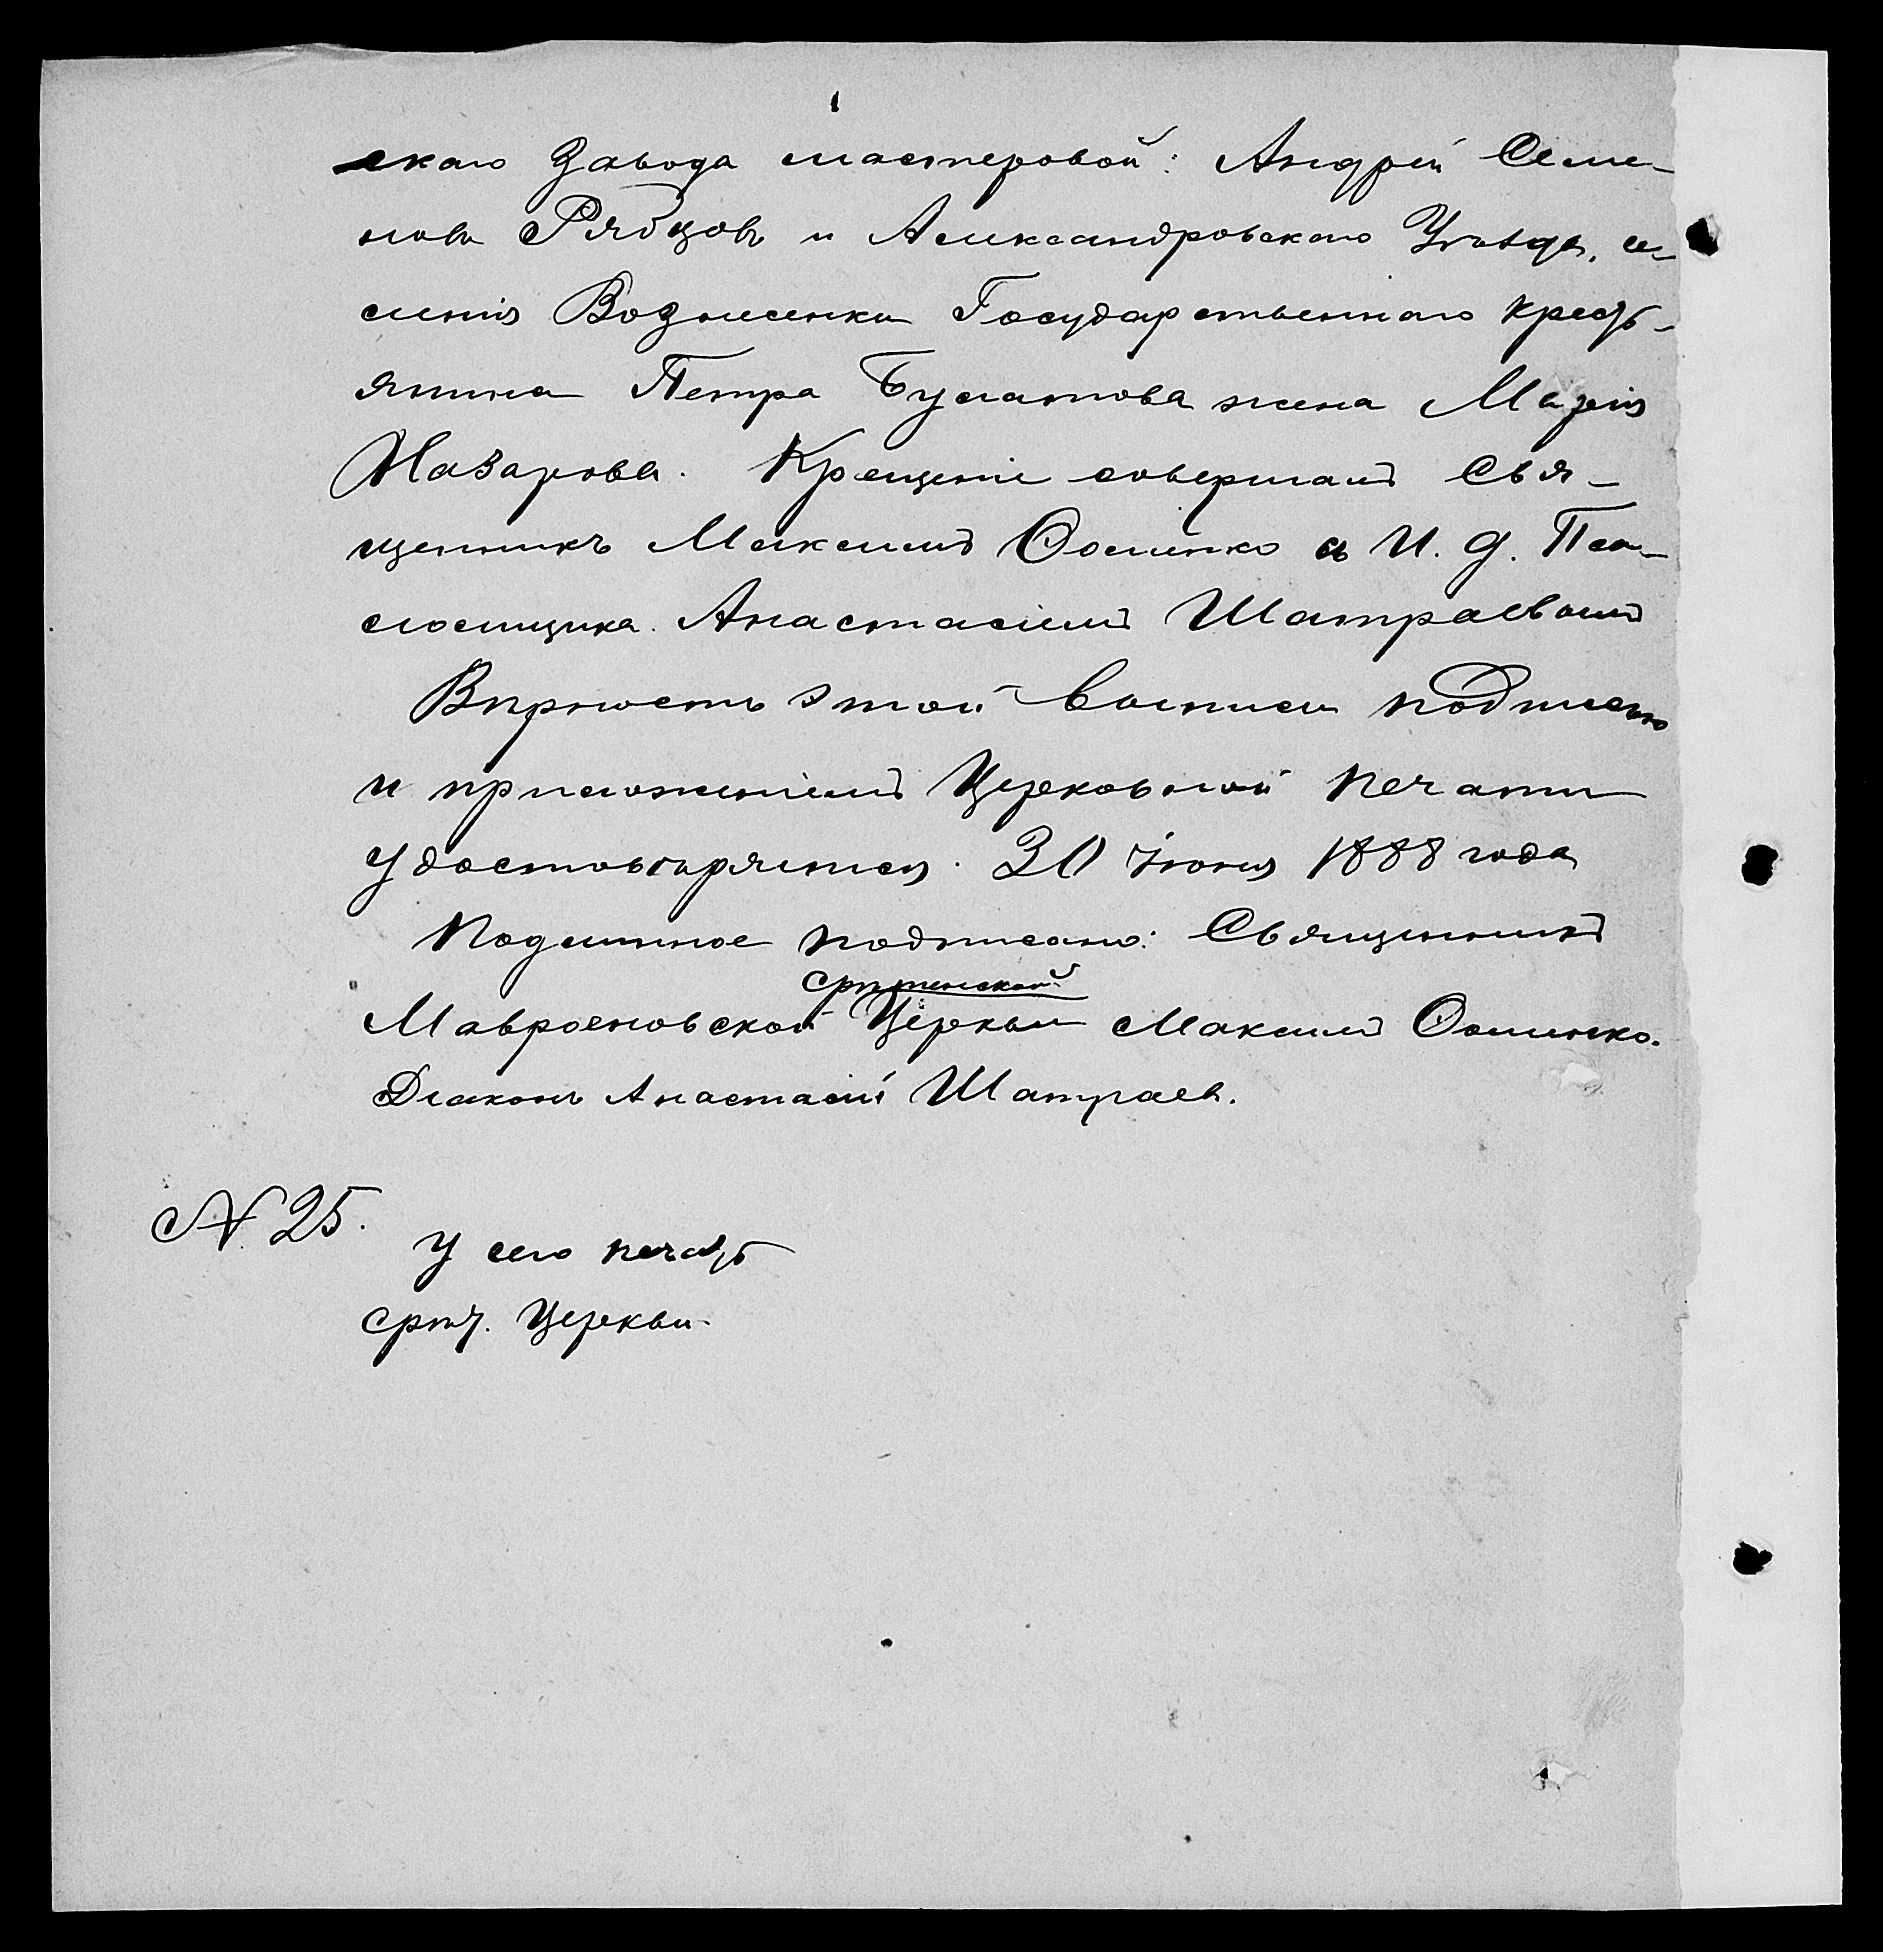 скаго Завода мастеровой: Андрей Семе-
новъ Рябцовъ и Александровскаго Уѣзда, се-
ленія Вознесенки Государственнаго кресть-
янина Петра Булатова жена Марія
Назарова. Крещеніе совершалъ Свя-
щенникъ Максимъ Ѳоменко съ И. д. Пса-
ломщика Анастасіемъ Шатраевымъ
Вѣрность этой выписи подписью
и приложеніемъ Церковной печати
удостовѣряется. 30 Іюня 1888 года
Подлинное подписано: Священникъ
Срѣтенской
Мавроеновской Церкви Максимъ Ѳоменко.
Діаконъ Анастасій Шатраевъ.
№ 25.
У сего печать
Срѣт. Церкви